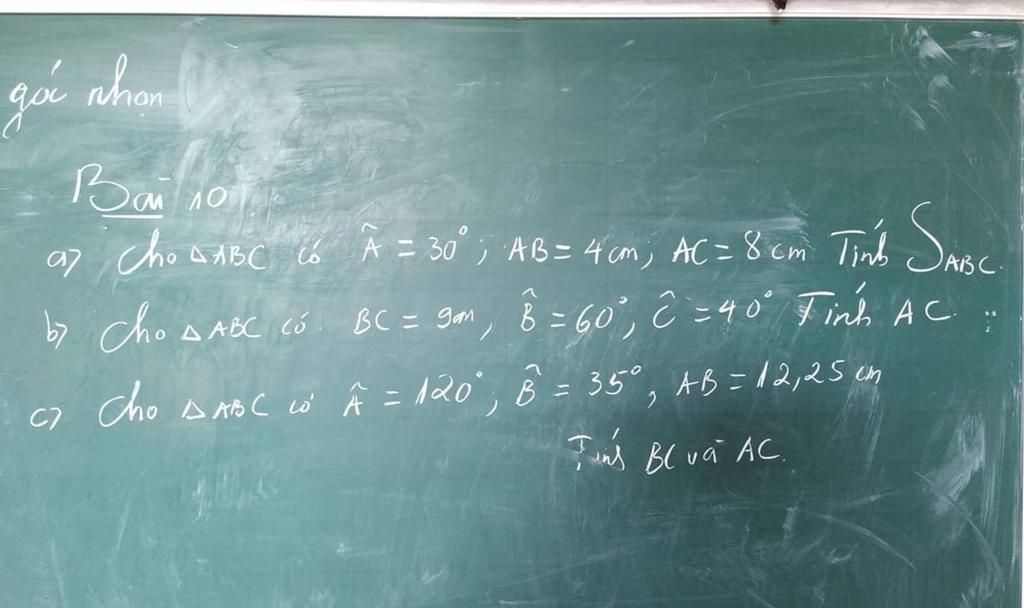 góc nhọn
Bài 10
a) Cho △ABC có Â = 30°; AB = 4 cm; AC = 8 cm Tính S_ABC.
b) Cho △ABC có BC = 9cm, B̂ = 60°, Ĉ = 40° Tính AC.
c) Cho △ABC có Â = 120°, B̂ = 35°, AB = 12,25 cm
Tính BC và AC.